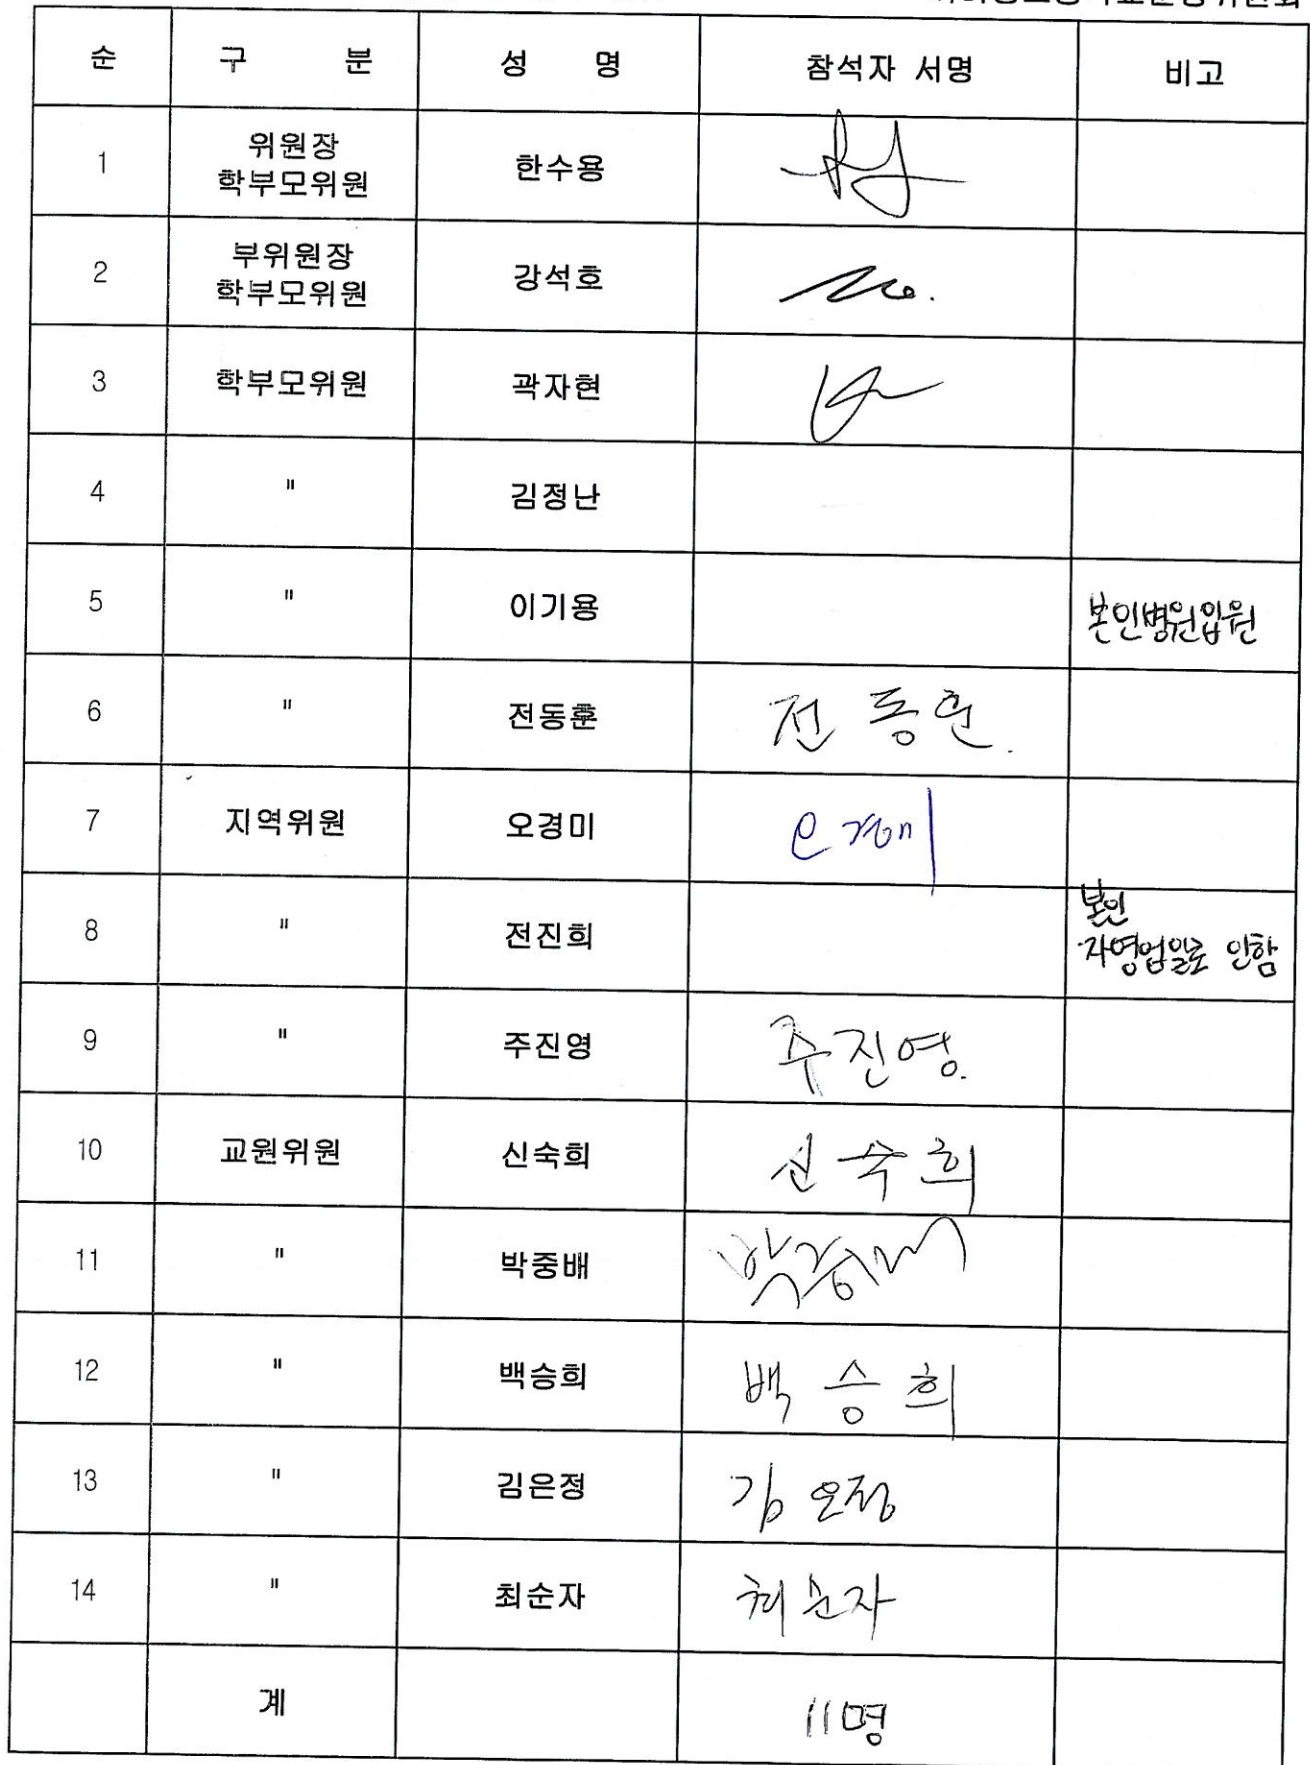 순 구 분 성 명 참석자 서명 비고
1 위원장 학부모위원 한수용
2 부위원장 학부모위원 강석호
3 학부모위원 곽자현
4 " 김정난
5 " 이기용 본인병원입원
6 " 전동훈 전동훈.
7 지역위원 오경미 오경미
8 " 전진희 본인 자영업일로 인함
9 " 주진영 주진영.
10 교원위원 신숙희 신숙희
11 " 박중배 박중배
12 " 백승희 백승희
13 " 김은정 김은정
14 " 최순자 최순자
계 11명